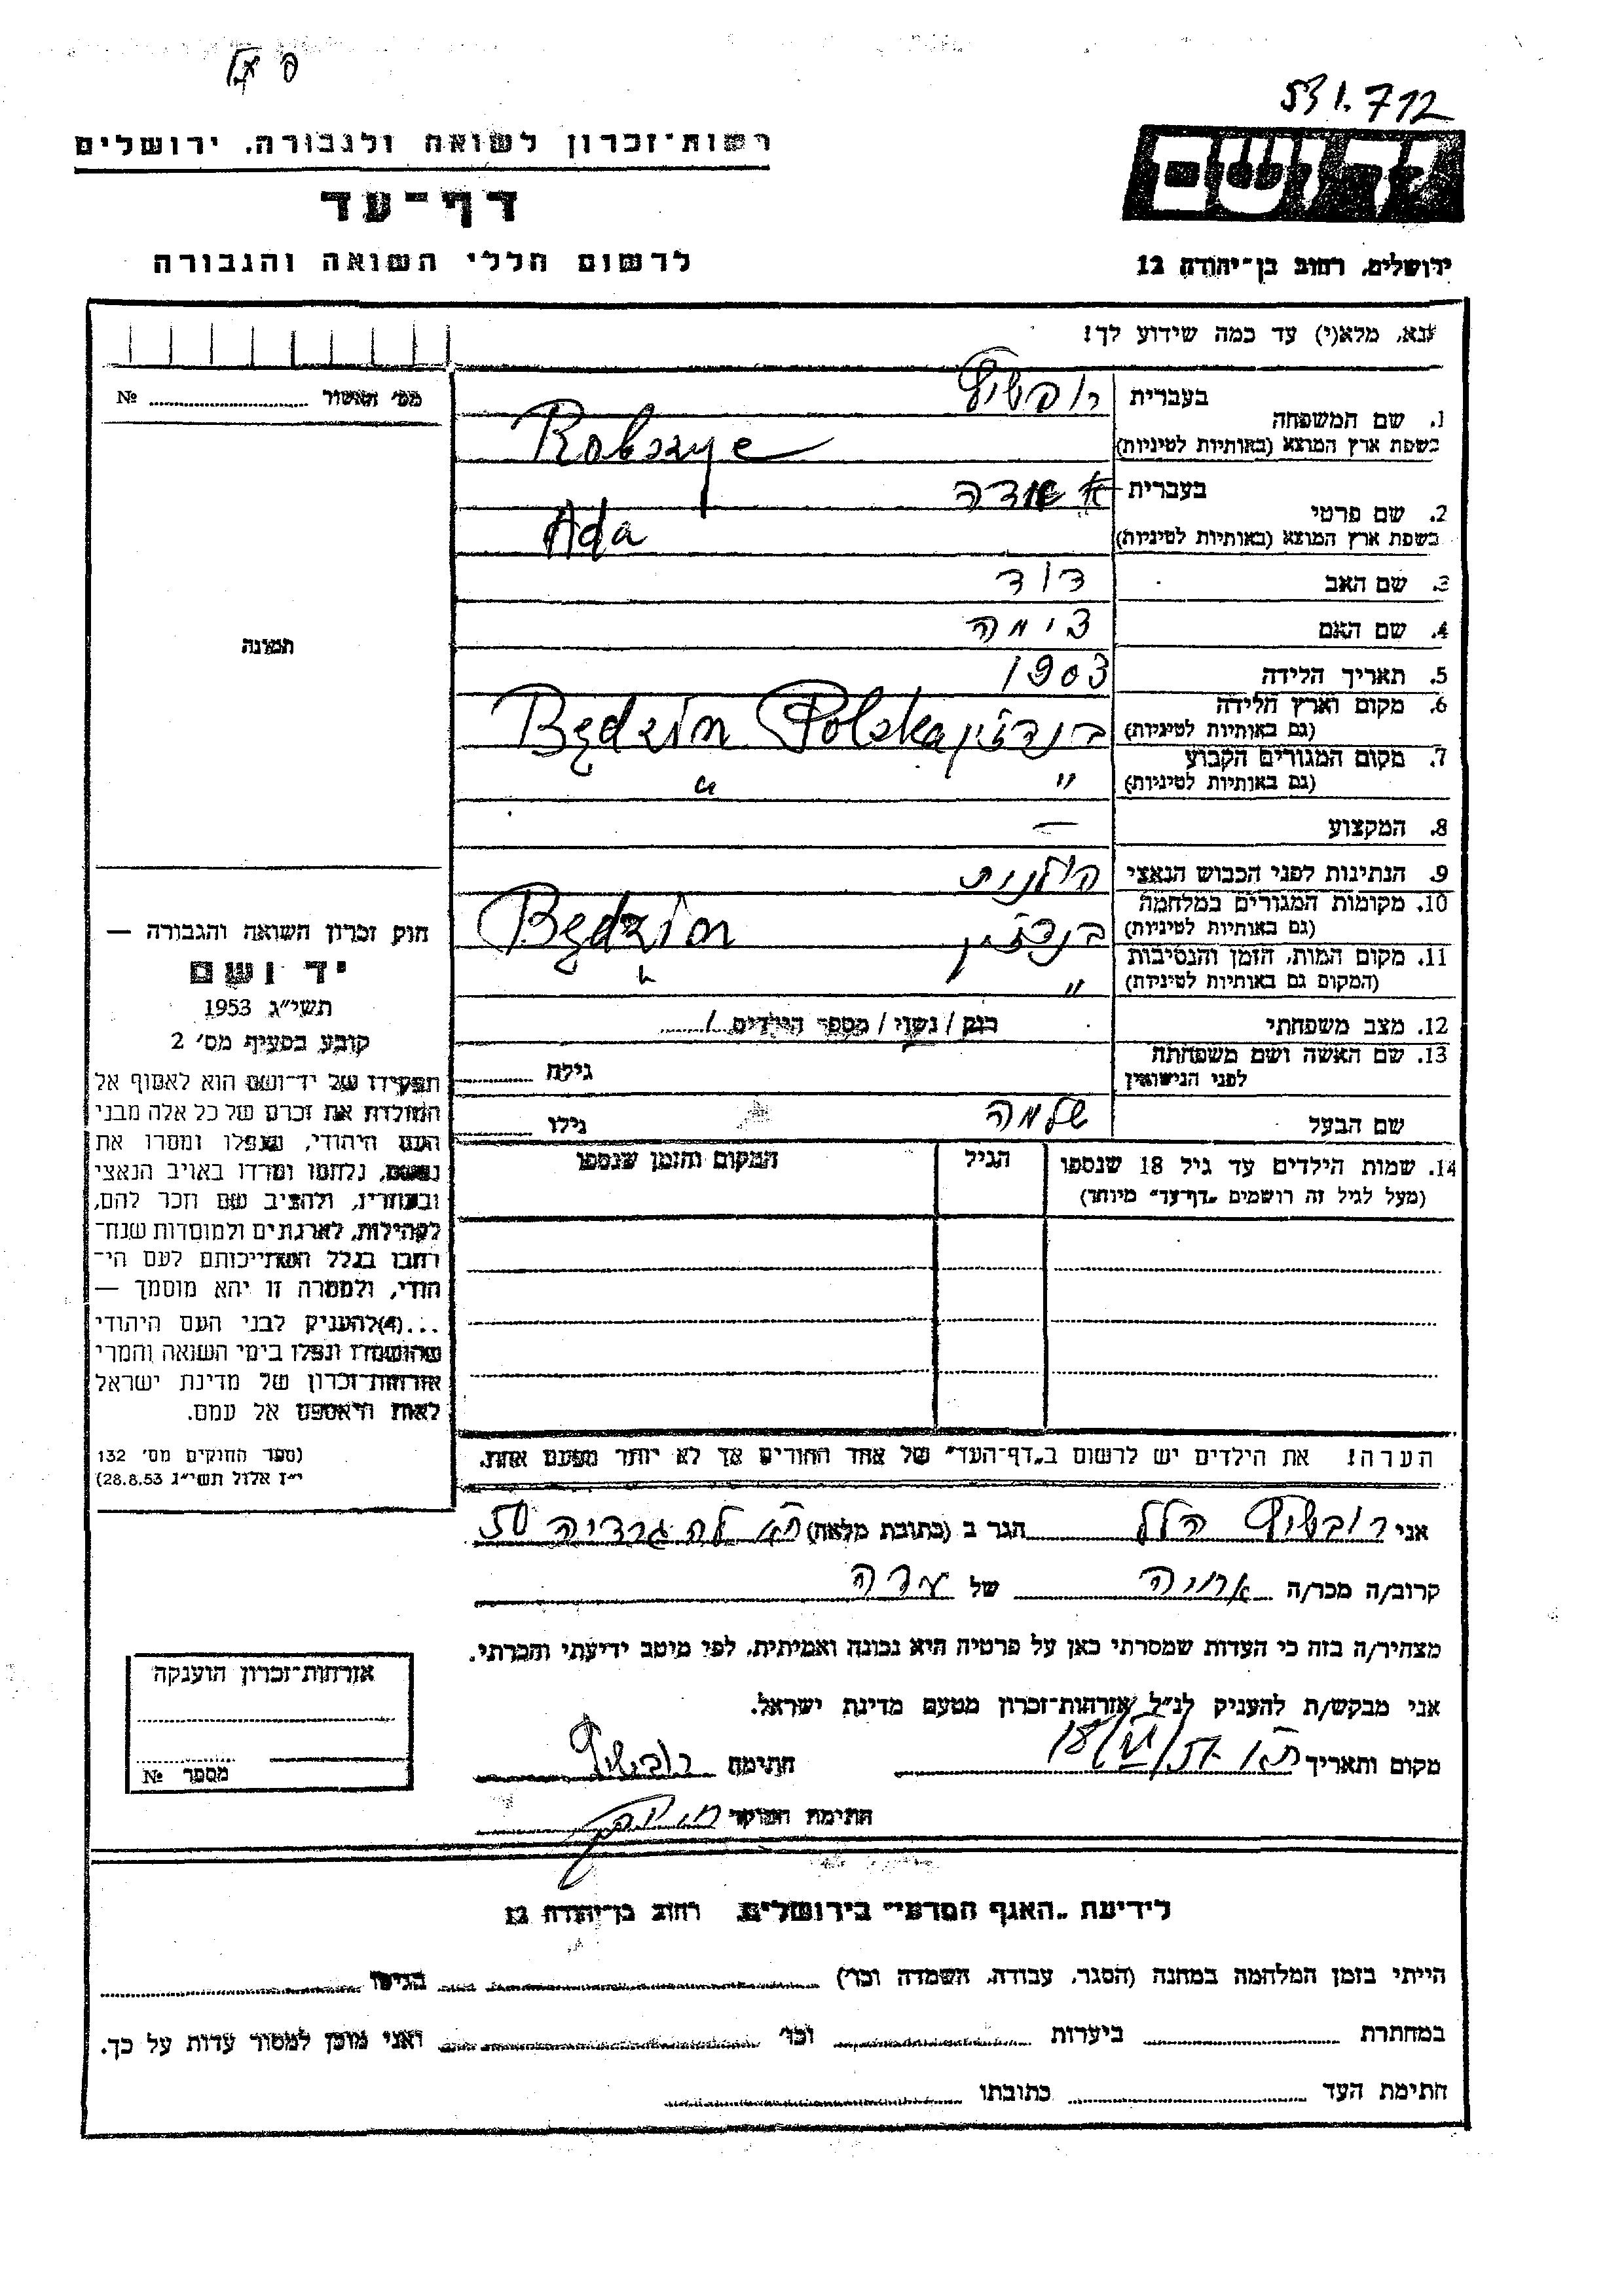 531.712
רשות־זכרון לשואה ולגבורה, ירושלים
יד ושם
דף־עד
לרשום חללי השואה והגבורה
ירושלים, רחוב בן־יהודה 12
נא, מלא(י) עד כמה שידוע לך!
מס' תאשור № 
1. שם המשפחה
בעברית
בשפת ארץ המוצא (באותיות לטיניות)
Robszye
2. שם פרטי
בעברית
עדה
בשפת ארץ המוצא (באותיות לטיניות)
Ada
3. שם האב
דוד
4. שם האם
צימה
5. תאריך הלידה
1903
6. מקום וארץ הלידה
(גם באותיות לטיניות)
בנדזין Będzin Polska
7. מקום המגורים הקבוע
(גם באותיות לטיניות)
" "
8. המקצוע
—
9. הנתינות לפני הכבוש הנאצי
פולנית
10. מקומות המגורים במלחמה
(גם באותיות לטיניות)
בנדזין Będzin
11. מקום המות, הזמן והנסיבות
(המקום גם באותיות לטיניות)
" "
12. מצב משפחתי
רוק / נשוי / מספר הילדים 1
13. שם האשה ושם משפחתה
לפני הנישואין
גילה
שם הבעל
שלמה
גילו
14. שמות הילדים עד גיל 18 שנספו
(מעל לגיל זה רושמים „דף־עד" מיוחד)
הגיל
המקום והזמן שנספו
תמונה
חוק זכרון השואה והגבורה —
יד ושם
תשי"ג 1953
קובע בסעיף מס' 2
תפקידו של יד־ושם הוא לאסוף אל
המולדת את זכרם של כל אלה מבני
העם היהודי, שנפלו ומסרו את
נפשם, נלחמו ומרדו באויב הנאצי
ובעוזריו, ולהציב שם וזכר להם,
לקהילות, לארגונים ולמוסדות שנח־
רבו בגלל השתייכותם לעם הי־
הודי, ולמטרה זו יהא מוסמך —
...(4)להעניק לבני העם היהודי
שהושמדו ונפלו בימי השואה והמרי
אזרחות־זכרון של מדינת ישראל
לאות היאספם אל עמם.
(ספר החוקים מס' 132
י"ז אלול תשי"ג 28.8.53)
הערה! את הילדים יש לרשום ב„דף־העד" של אחד ההורים אך לא יותר מפעם אחת.
אני רובשיץ הלל הגר ב (כתובת מלאה) ת"א לה גרדיה 50
קרוב/ה מכר/ה של עדה
מצהיר/ה בזה כי העדות שמסרתי כאן על פרטיה היא נכונה ואמיתית, לפי מיטב ידיעתי והכרתי.
אני מבקש/ת להעניק לנ"ל אזרחות־זכרון מטעם מדינת ישראל.
מקום ותאריך ת"א חתימה
חתימת הפוקד
אזרחות־זכרון הוענקה
מספר №
לידיעת „האגף המדעי" בירושלים, רחוב בן־יהודה 12
הייתי בזמן המלחמה במחנה (הסגר, עבודה, השמדה וכו') בגיטו
במחתרת ביערות וכו' ואני מוכן למסור עדות על כך.
חתימת העד כתובתו